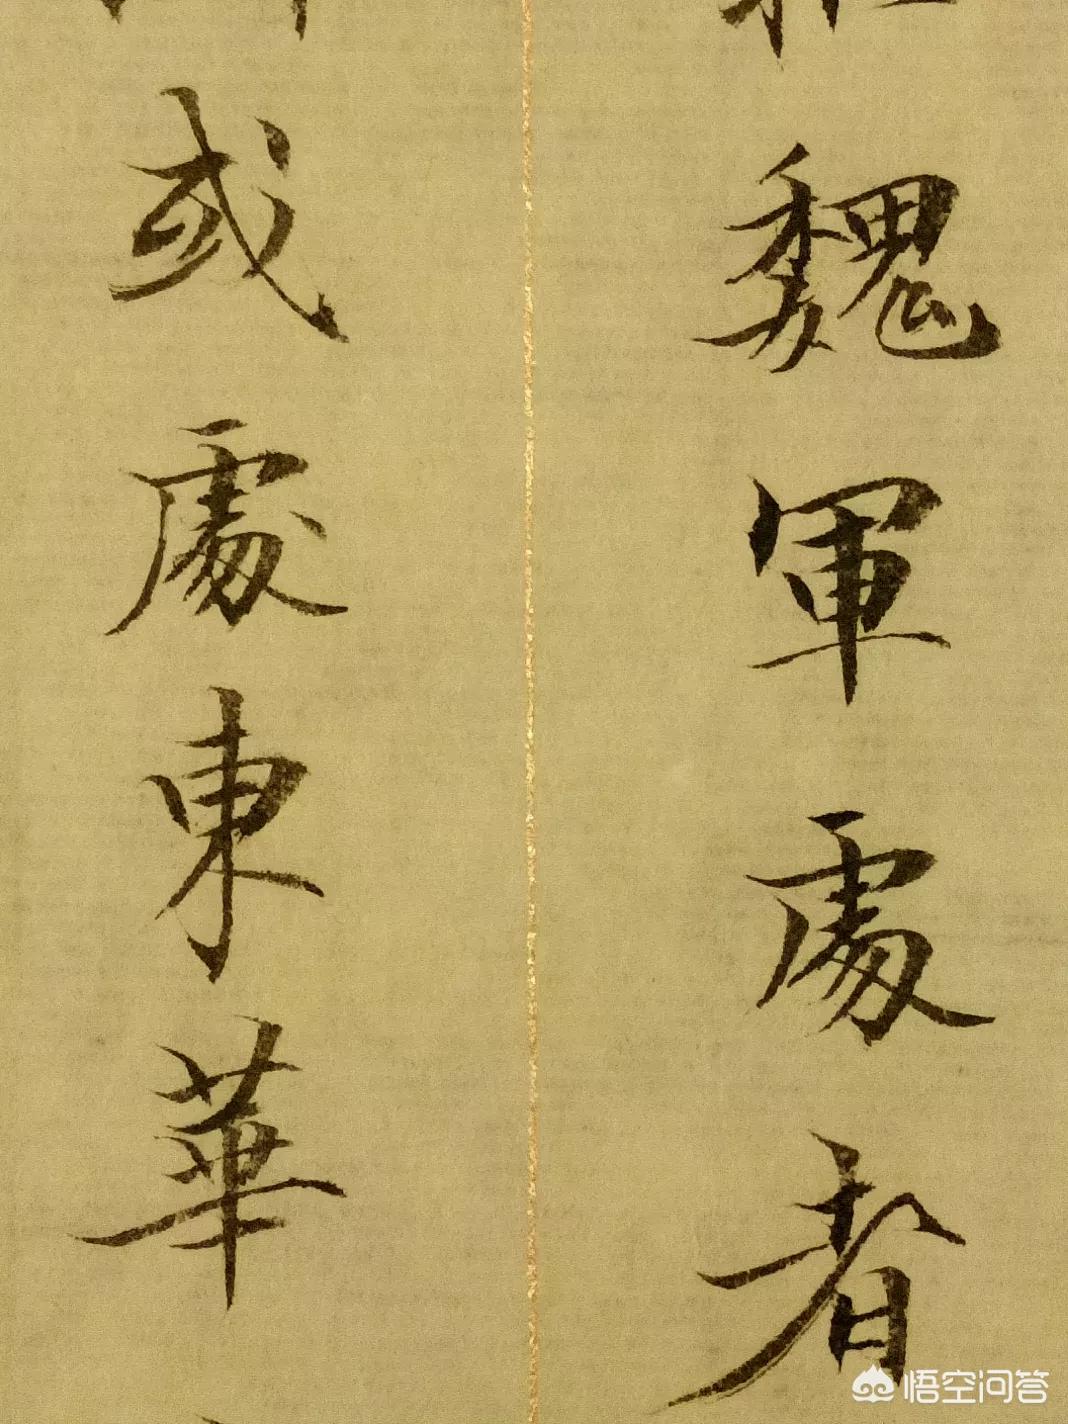 魏軍處者
或處東華
悟空问答